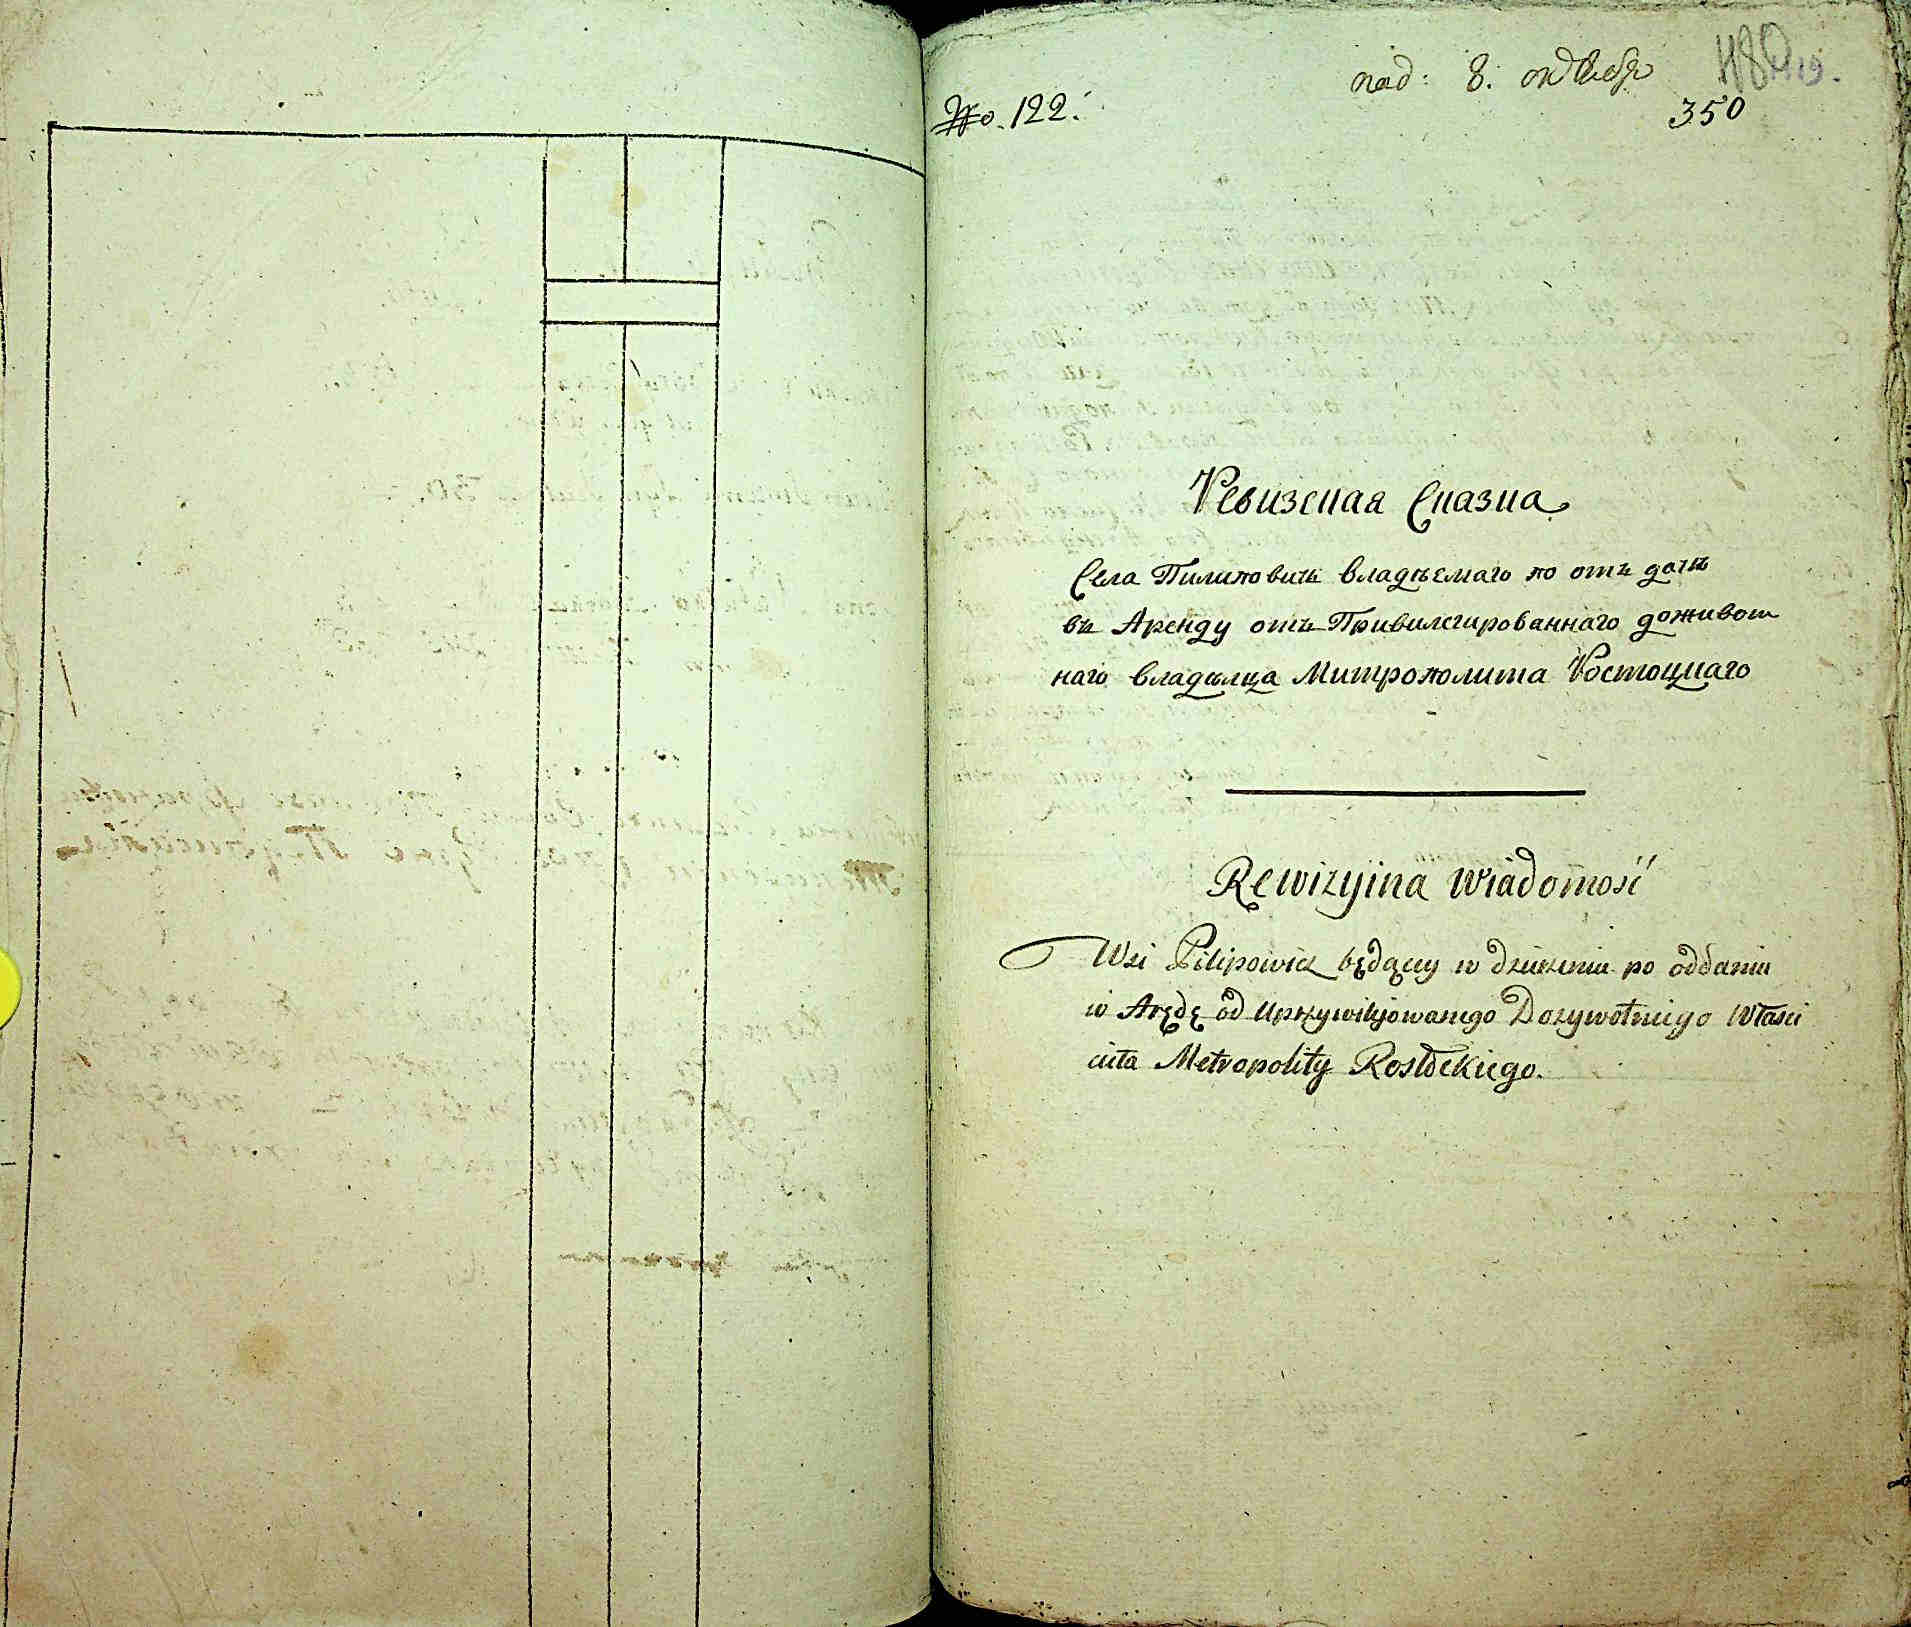 No. 122.
под: 8. октября
350
Ревизская Сказка
Села Пилиповичъ владѣемаго по отъ дачѣ
въ Аренду отъ Привилегированнаго доживот
наго владѣлца Митрополита Ростоцкаго
Rewizyina Wiadomość
Wsi Pilipowicz będącey w dzierżeniu po oddaniu
w Arędę od Uprzywilijowanego Dożywotniego Właści
ciela Metropolity Rostockiego.